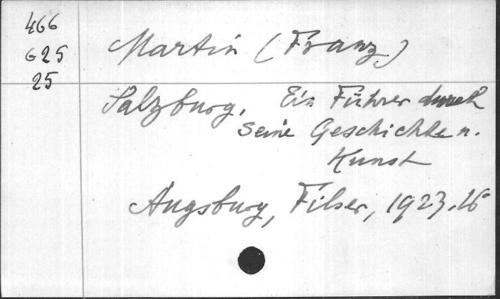 466
625
25
Martin (Franz)
Salzburg. Ein Führer durch
seine Geschichte u.
Kunst
Augsburg, Filser, 1923. 16°